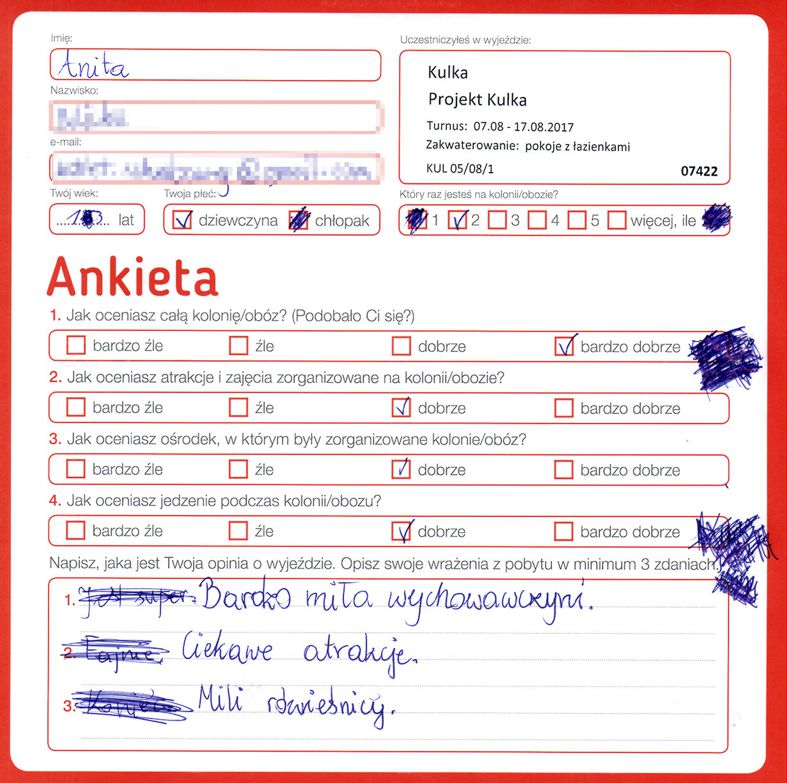 Imię:
Uczestniczyłeś w wyjeździe:
Anita
Kulka
Projekt Kulka
Turnus: 07.08 - 17.08.2017
Zakwaterowanie: pokoje z łazienkami
KUL 05/08/1 07422
Nazwisko:
e-mail:
Twój wiek:
Twoja płeć:
Który raz jesteś na kolonii/obozie?
lat
dziewczyna chłopak
1 2 3 4 5 więcej, ile
Ankieta
1. Jak oceniasz całą kolonię/obóz? (Podobało Ci się?)
bardzo źle źle dobrze bardzo dobrze
2. Jak oceniasz atrakcje i zajęcia zorganizowane na kolonii/obozie?
bardzo źle źle dobrze bardzo dobrze
3. Jak oceniasz ośrodek, w którym były zorganizowane kolonie/obóz?
bardzo źle źle dobrze bardzo dobrze
4. Jak oceniasz jedzenie podczas kolonii/obozu?
bardzo źle źle dobrze bardzo dobrze
Napisz, jaka jest Twoja opinia o wyjeździe. Opisz swoje wrażenia z pobytu w minimum 3 zdaniach.
1. Jest super. Bardzo miła wychowawczyni.
2. Fajnie. Ciekawe atrakcje.
3. Mili rówieśnicy.